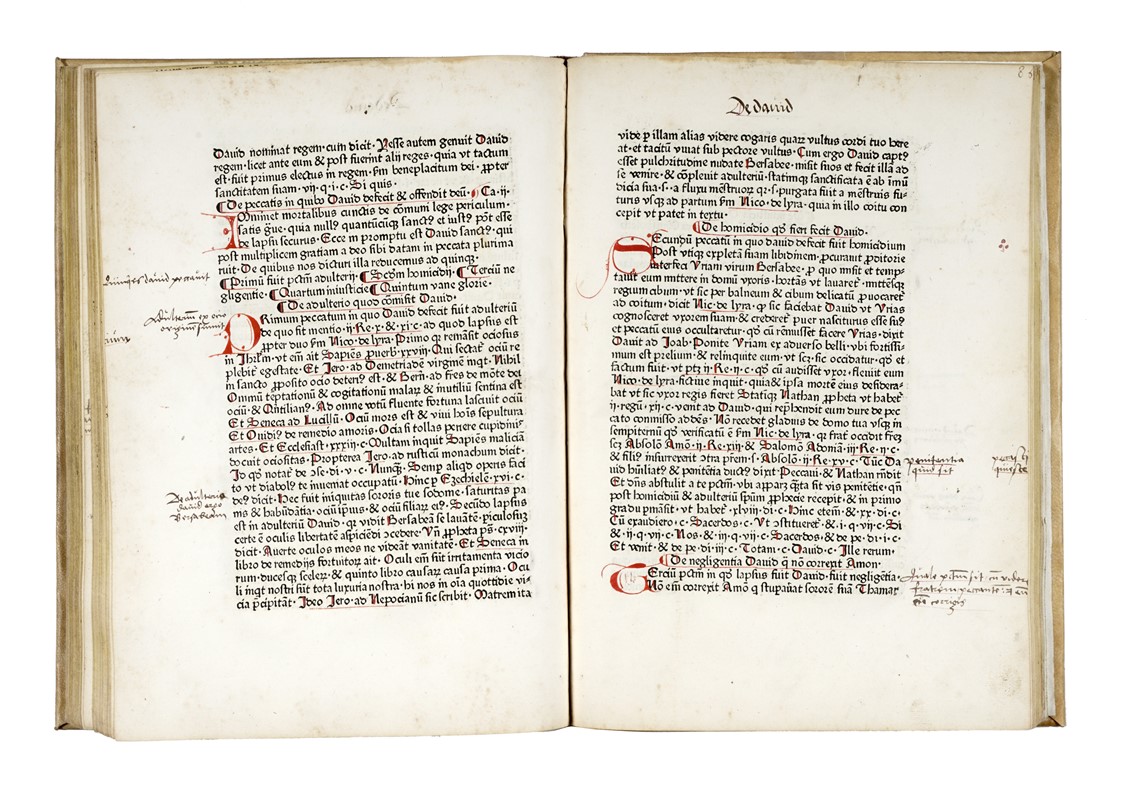 Dauid nominat regem· cum dicit· Yesse autem genuit Dauid
regem· licet ante eum & post fuerint alij reges· quia vt tactum
est· fuit primus electus in regem· s̃m beneplacitum dei· ꝓpter
sanctitatem suam· vij·q·i·c·Si quis·
De peccatis in quibꝰ Dauid defecit & offendit deũ· Ca·ij·
Iominet mortalibus cunctis de cõmuni lege periculum·
satis g̃ue· quia null⁹ quantũcũqꝫ sanct⁹ et iust⁹ põt esse
de lapsu securus· Ecce in promptu est Dauid sanct⁹· qui
post multiplicem gratiam a deo sibi datam in peccata plurima
ruit· De quibus nos dicturi illa reducemus ad quinqꝫ·
Primũ fuit pctm̃ adulterij· Scd̃m homicidij· Terciũ ne
gligentie· Quartum iniusticie Quintum vane glorie·
De adulterio quod cõmisit Dauid·
PRimum peccatum in quo Dauid defecit fuit adulteriũ
de quo fit mentio·ij·Re·x·&·xi·c· ad quod lapsus est
ꝓpter duo s̃m Nico·de lyra· Primo qꝛ remãsit ociosus
in Jhrl̃m· vt em̃ ait Sapiẽs ꝓuerb·xxviij· Qui sectat᷑ ociũ re
plebit᷑ egestate· Et Jero· ad Demetriadẽ virginẽ inqt· Nihil
in sancto ꝓposito ocio deteri⁹ est· & Bern· ad fr̃es de mõte dei
Omniũ teptationũ & cogitationũ malaꝝ & inutiliũ sentina est
ociũ· & Q̃ntilian⁹· Ad omne votũ fluente fortuna lasciuit ociũ
Et Seneca ad Lucillũ· Ociũ mors est & viui hoĩs sepultura
Et Ouidi⁹ de remedio amoris· Ocia si tollas periere cupidinis
artes· Et Ecclesiast·xxxiij·c· Multam inquit Sapiẽs maliciã
docuit ociositas· Propterea Jero· ad rusticũ monachum dicit·
Id qõ notat᷑ de ↄse·di·v·c·Nunqꝫ· Semp aliqd operis faci
to vt diabol⁹ te inueniat occupatũ· Hinc ꝑ Ezechielẽ·xvi·c·
de⁹ dicit· Hec fuit iniquitas sororis tue sodome· saturitas pa
nis & habũdãtia· ociũ ipius· & ociũ filiaꝝ ei⁹· Secũdo lapsus
est in adulteriũ Dauid· qꝛ vidit Bersabeã se lauãtẽ· ꝑiculosuꝫ
certe ẽ oculis libertatẽ aspiciẽdi ↄcedere· Vñ ꝓpheta ps·cxviij·
dicit· Auerte oculos meos ne videãt vanitatẽ· Et Seneca in
libro de remedijs fortuitoꝝ ait· Oculi em̃ sũt irritamenta vicio
rum· ducesqꝫ sceleꝝ· & quinto libro causaꝝ causa prima· Ocu
li inqt nostri sũt tota luxuria nostra· hi nos in oĩa quottidie vi-
cia p̃cipitãt· Ideo Jero·ad Nepocianũ sic scribit· Matrem ita
De dauid
vide ꝑ illam alias videre cogaris quaꝝ vultus cordi tuo here
at· et tacitũ viuat sub pectore vultus· Cum ergo Dauid capt⁹
esset pulchritudine nudate Bersabee· misit suos et fecit illã ad
se venire· & cõpleuit adulteriũ· statimqꝫ sanctificata ẽ ab im̃ũ
dicia sua·s·a fluxu mẽstruoꝝ· qꝛ·s·purgata fuit a mẽstruis fu-
turis vsqꝫ ad partum s̃m Nico·de lyra· quia in illo coitu con
cepit vt patet in textu·
De homicidio qõ fieri fecit Dauid·
SEcundũ peccatũ in quo dauid defecit fuit homicidium
Post vtiqꝫ expletã suam libidinem· ꝓcurauit ꝓditorie
interfeci Vriam virum Bersabee· ꝓ quo misit et temp-
tauit eum mittere in domũ vxoris· hortãs vt lauaret᷑· mittẽsqꝫ
regium cibum· vt sic per balneum & cibum delicatũ ꝓuocaret᷑
ad coitum· dicit Nic·de lyra· qꝛ sic faciebat Dauid vt Vrias
cognosceret vxorem suam· & crederet᷑ puer nasciturus esse su⁹·
et peccatũ eius occultaretur· qõ cũ remisset facere Vrias· dixit
Dauid ad Joab· Ponite Vriam ex aduerso belli· vbi fortissi-
mum est prelium· & relinquite eum· vt scꝫ sic occidatur· qõ et
factum fuit· vt ptꝫ ij·Re·ij·c· qõ cũ audisset vxor· fleuit eum
Nico·de lyra·fictiue inquit· quia & ipsa mortẽ eius desidera-
bat vt sic vxor regis fieret Statiqꝫ Nathan ꝓpheta vt habet᷑
ij·regũ·xij·c· venit ad Dauid· qui rephendit eum dure de pec
cato commisso addẽs· Nõ recedet gladius de domo tua vsqꝫ in
sempiternũ· qõ verificatũ ẽ s̃m Nic·de lyra· qꝛ frat᷑ occidit fr̃eꝫ
scꝫ Absolõ Amõ·ij·Re·xiij· & Salomon Adoniã·iij·Re·ij·c·
& fili⁹ insurrexit ↄtra pr̃em·s·Absolõ·ij·Re·xv·c· Tũc Da
uid hũliat⁹· & penitẽtia duct⁹ dixit· Peccaui· & Nathan r̃ndit
Et dñs abstulit a te pctm̃· vbi apparꝫ q̃ta sit vis penitẽtie· qñ
post homicidiũ & adulteriũ spm̃ ꝓphecie recepit· & in primo
gradu p̃mãsit· vt habet᷑·xlviij·di·c· Hinc etem̃· &·xx·di·c·
Cũ exaudiero·c·Sacerdos·c· Vt ↄstitueret᷑·&·i·q·vij·c·Si
& ij·q·vij·c·Nos·& iij·q·vij·c·Sacerdos·& de pe·di·i·c·
Et venit·& de pe·di·iij·c·Totam·c·Dauid·c·Ille rerum·
De negligentia Dauid q̃ nõ correxit Amon·
TErciũ pctm̃ in qõ lapsus fuit Dauid· fuit negligẽtia·
Nõ em̃ correxit Amõ q stupauat sororẽ suã Thamar